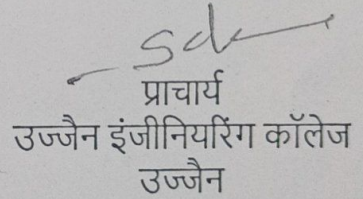 Sd
प्राचार्य
उज्जैन इंजीनियरिंग कॉलेज
उज्जैन